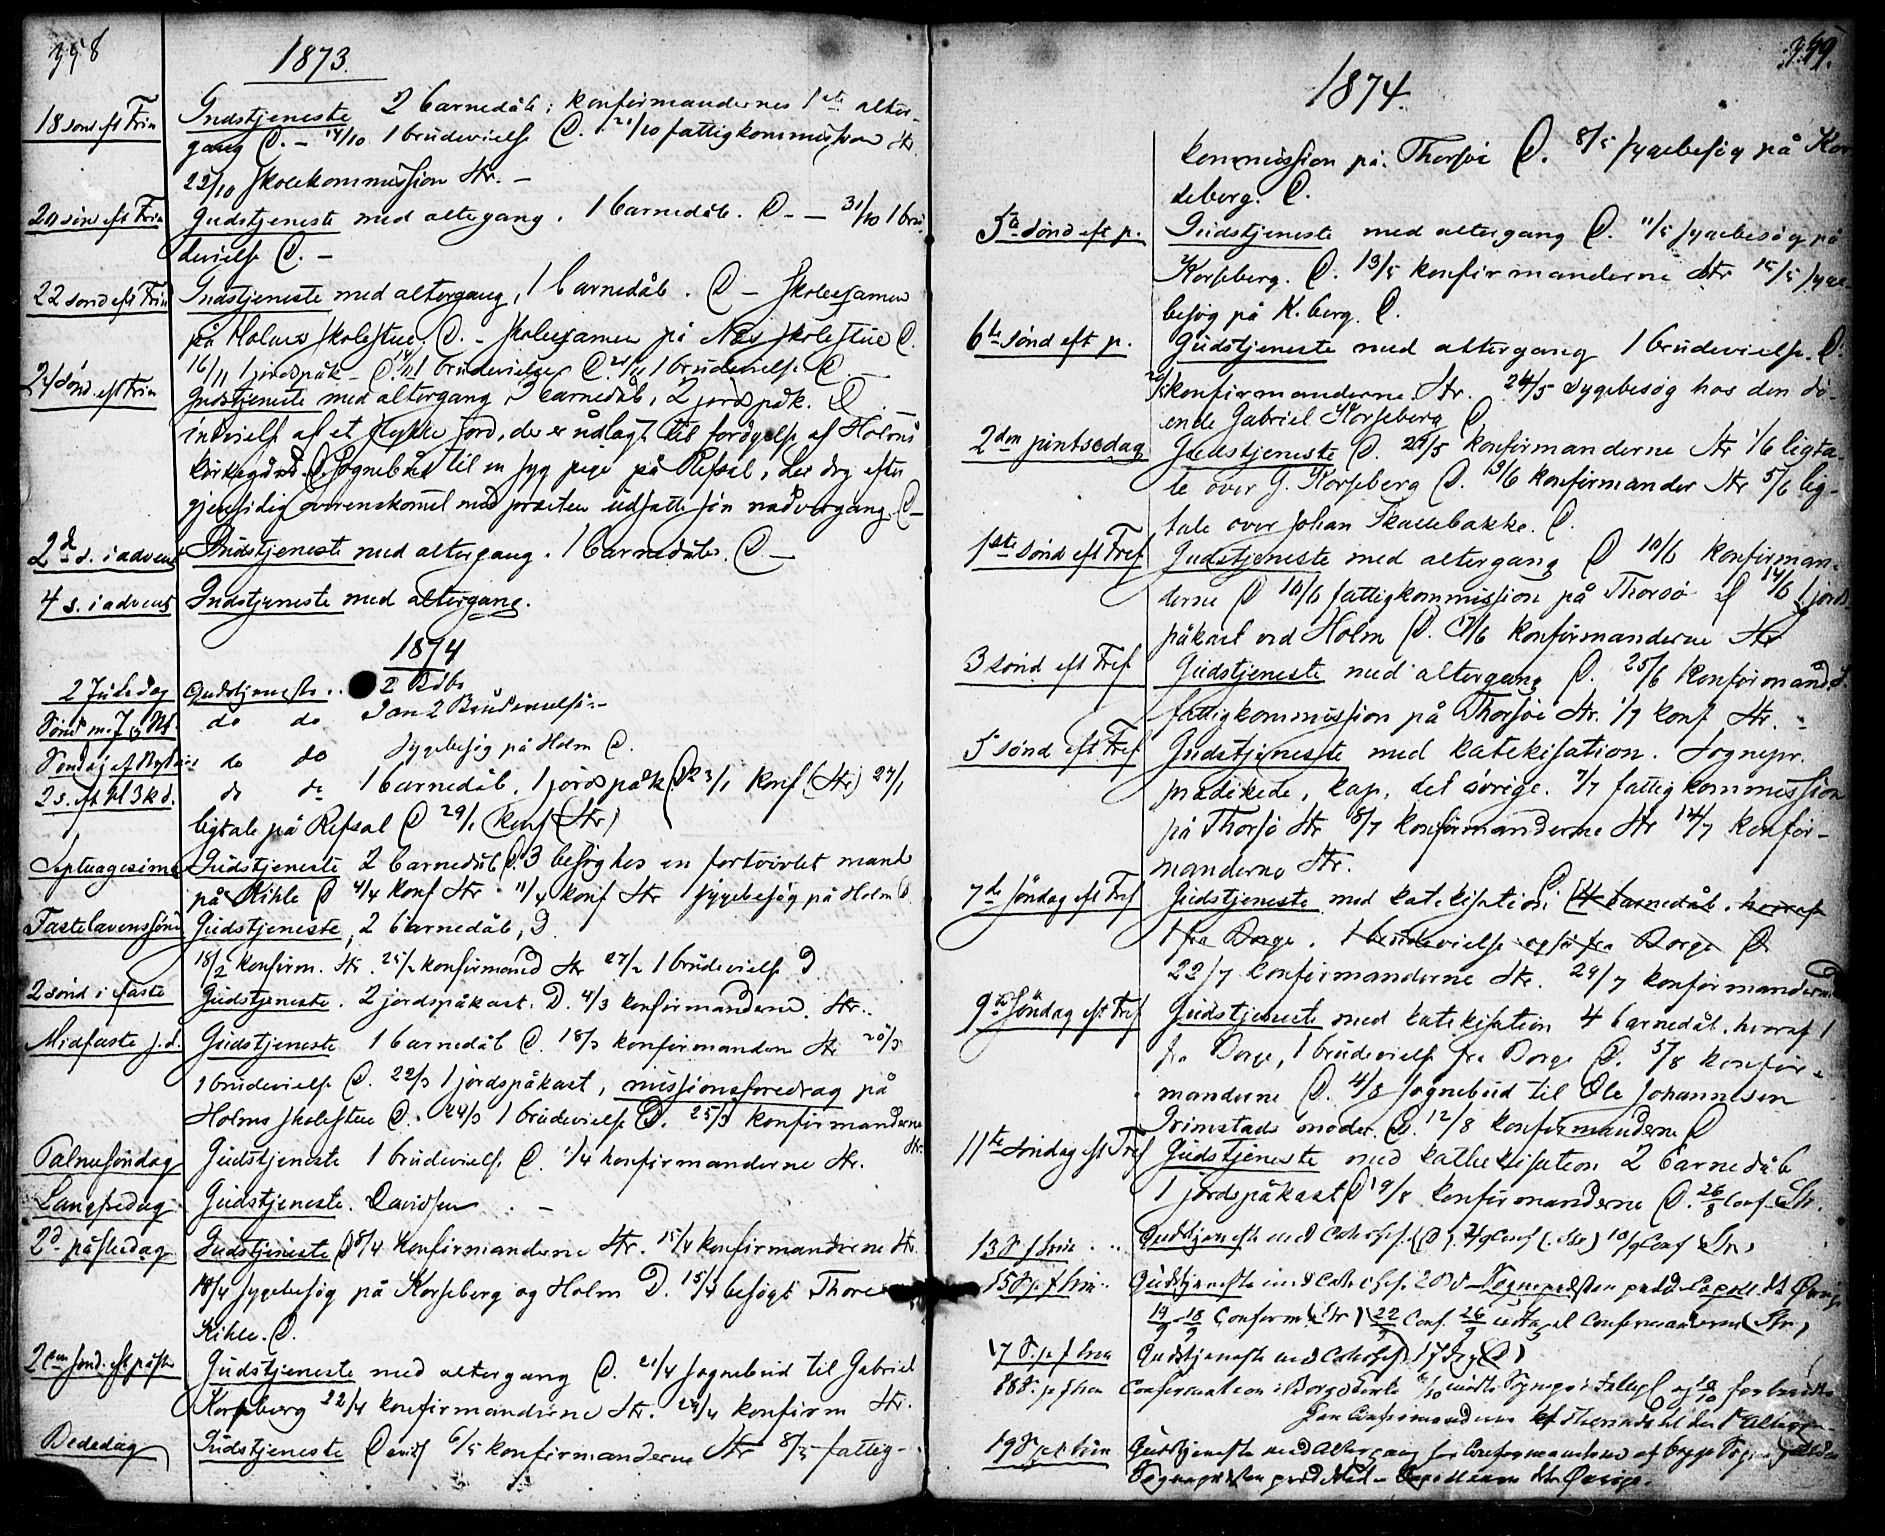 358
1873.
18 sönd eft Trin Gudstjeneste 2 barnedåb; konfirmandernes 1ste alter-
gang D. – 14/10 1 brudevielse D. 21/10 fattigkommission Str
22/10 skolekommission Str. –
20 sönd eft Trin Gudstjeneste med altergang. 1 barnedåb. D. – 31/10 1 bru
devielse D. –
22 sönd eft Trin Gudstjeneste med altergang, 1 barnedåb. D – Skoleexamen
på Holms skolestue. D. – skoleexamen på Næs skolestue D.
16/11 1 jordspåk – D. 1 brudevielse D. 1 brudevielse D. –
24 sönd eft Trin Gudstjeneste med altergang, 3 barnedåb, 2 jordspåk. D
indvielse af et stykke jord, der er udlagt til forögelse af Holms
kirkegård. D Sognebud til en syg pige på Refsal, der dog efter
gjensidig overenskomst med præsten udsatte sin nadvergang D –
2d s. i advent Gudstjeneste med altergang. 1 barnedåb. D. –
4 s. i advent Gudstjeneste med altergang.
1874
2 Juledag Gudstjeneste .. 2 Dåb
Sönd m. J & Nt do do Jan 2 Brudevielse –
Söndag ef Nytaar do do Sygebesög på Holm D.
2 s. eft H 3 K d. do do 1 barnedåb. 1 jordspåk D 23/1 konf (Str) 27/1
ligtale på Refsal D 29/1 konf (Str)
Septuagesima Gudstjeneste 2 barnedåb D. 3 besögtes en fortvivlet mand
på Kihle D 4/4 konf Str. 11/4 konf Str sygebesög på Holm D
Fastelavenssönd Gudstjeneste, 2 barnedåb, D
18/2 konfirm. Str. 25/2 konfirmand Str 27/2 1 brudevielse D
2 sönd i faste Gudstjeneste. 2 jordspåkast. D. 4/3 konfirmanderne. Str.
Midfaste s.d. Gudstjeneste 1 barnedåb D. 18/3 konfirmandern Str 20/3
1 brudevielse D. 22/3 1 jordspåkast, missionsforedrag på
Holms skolestue D. 24/3 1 brudevielse D. 25/3 konfirmanderne
Str.
Palmesöndag Gudstjeneste 1 brudevielse D. 1/4 konfirmanderne Str.
Langfredag Gudstjeneste. Davidsen –
2d påskedag Gudstjeneste D 8/4 konfirmanderne Str. 15/4 konfirmanderne Str.
14/4 sygebesög på Korseberg og Holm D. 15/4 besögt Thore
Kihle. D.
2den sönd. eft påske Gudstjeneste med altergang D. 21/4 sognebud til Gabriel
Korseberg 22/4 konfirmanderne Str. 29/4 konfirm Str.
Bededag Gudstjeneste Davids 6/5 konfirmanderne Str 8/5 fattig-
359.
1874.
kommission på Thorsöe D. 8/5 sygebesög på Kor
seberg. D.
5te sönd eft p. Gudstjeneste med altergang D. 11/5 sygebesög på
Korseberg. D. 13/5 konfirmanderne Str 15/5 syge-
besög på K.berg. D.
6te sönd eft p. Gudstjeneste med altergang 1 brudevielse. D.
20/5 konfirmanderne Str. 24/5 sygebesög hos den dö-
ende Gabriel Korseberg D
2den pintsedag Gudstjeneste D. 27/5 konfirmanderne Str 1/6 ligta-
le over G. Korseberg D. 3/6 konfirmander Str 5/6 lig-
tale over Johan Skallebakke. D.
1ste sönd eft Tref Gudstjeneste med altergang D 10/6 konfirman-
derne D 10/6 fattigkommission på Thorsö D 14/6 1 jords-
påkast ved Holm D. 17/6 konfirmanderne Str
3 sönd eft Tref Gudstjeneste med altergang D. 25/6 konfirmand S.
fattigkommission på Thorsöe Str. 1/7 konf Str. –
5 sönd eft Tref Gudstjeneste med katekisation. Sognepr.
prædikede, kap. det övrige. 7/7 fattigkommission
på Thorsö Str 8/7 konfirmanderne Str 14/7 konfir-
manderne Str.
7de söndag eft Tref Gudstjeneste med katekisation. D. (4 barnedåb, hvoraf
1 fra Borge. 1 brudevielse også fra Borge D
22/7 konfirmanderne Str. 29/7 konfirmanderne
9de söndag eft Tref Gudstjeneste med katekisation 4 barnedåb, hvoraf 1
fr Borge, 1 brudevielse fra Borge D. 5/8 konfir-
manderne D. 4/8 sognebud til Ole Johannesen
Grimstads moder. D. 12/8 konfirmanderne D
11te söndag eft Tref Gudstjeneste med kathekisation 2 barnedåb
1 jordspåkast D 19/8 konfirmanderne D. 26/8 Conf. Str.
13 S f Trin Gudstjeneste med Cateches. (D). 2/9 Conf (Str) 10/9 Conf (Str)
15 S. p. f Trin Gudstjeneste med Cateches. 2 D – Sognepræsten præd – Capell. det Övrige
14/9 18/9 Conferm (Str) 22/9 Conf. 26/9 Confirmanderne (Str)
17 S. p f Trin Gudstjeneste med Cateches. (D)
18 S. p f Trin Confirmation i Borge Kirke
19 S. p f Trin Gudstjeneste med Altergang for Confirmanderne af begge Sogne
Sognepræsten prædikede – Capellanen det Övrige.